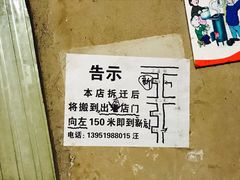 告示
本店拆迁后
将搬到出老店门
向左150米即到新店
电话: 13951988015 汪
新